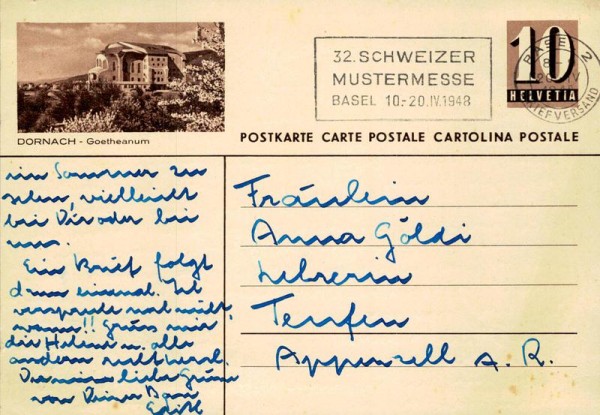 32. SCHWEIZER
MUSTERMESSE
BASEL 10.-20.IV.1948
10
HELVETIA
BASEL 2
BRIEFVERSAND
DORNACH - Goetheanum
POSTKARTE CARTE POSTALE CARTOLINA POSTALE
im Sommer zu
sehen, vielleicht
bei Dir oder bei
uns.
Ein Brief folgt
dann einmal. Ich
verspreche noch nicht,
wann!! Grüss mir
die Helen u. alle
andern recht herzl.
liebe Grüsse
von Deiner
Edith
Fräulein
Anna Göldi
Lehrerin
Teufen
Appenzell A. R.